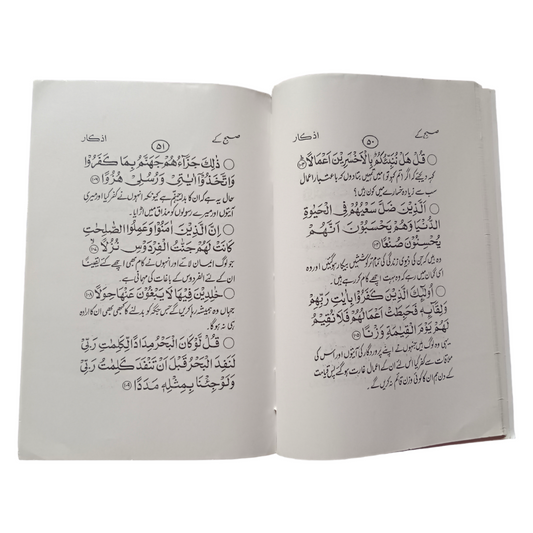 صبح کے ۵۰ اذکار
قُلْ هَلْ نُنَبِّئُكُمْ بِالْاَخْسَرِيْنَ اَعْمَالًا ۱۰۳
کہہ دیجئے کہ اگر تم کہو تو میں تمہیں بتا دوں کہ باعتبار اعمال
سب سے زیادہ خسارے میں کون ہیں؟
اَلَّذِيْنَ ضَلَّ سَعْيُهُمْ فِي الْحَيٰوةِ
الدُّنْيَا وَهُمْ يَحْسَبُوْنَ اَنَّهُمْ
يُحْسِنُوْنَ صُنْعًا ۱۰۴
وہ ہیں کہ جن کی دنیوی زندگی کی تمام تر کوششیں بیکار ہو گئیں اور وہ
اسی گمان میں رہے کہ وہ بہت اچھے کام کر رہے ہیں۔
اُولٰٓئِكَ الَّذِيْنَ كَفَرُوْا بِاٰيٰتِ رَبِّهِمْ
وَلِقَآئِهٖ فَحَبِطَتْ اَعْمَالُهُمْ فَلَا نُقِيْمُ
لَهُمْ يَوْمَ الْقِيٰمَةِ وَزْنًا ۱۰۵
یہی وہ لوگ ہیں جنہوں نے اپنے پروردگار کی آیتوں اور اس کی
ملاقات سے کفر کیا اس لئے ان کے اعمال غارت ہو گئے پس قیامت
کے دن ہم ان کا کوئی وزن قائم نہ کریں گے۔
صبح کے ۵۱ اذکار
ذٰلِكَ جَزَآؤُهُمْ جَهَنَّمُ بِمَا كَفَرُوْا
وَاتَّخَذُوْٓا اٰيٰتِيْ وَرُسُلِيْ هُزُوًا ۱۰۶
حال یہ ہے کہ ان کا بدلہ جہنم ہے کیونکہ انہوں نے کفر کیا اور میری
آیتوں اور میرے رسولوں کو مذاق میں اڑایا۔
اِنَّ الَّذِيْنَ اٰمَنُوْا وَعَمِلُوا الصّٰلِحٰتِ
كَانَتْ لَهُمْ جَنّٰتُ الْفِرْدَوْسِ نُزُلًا ۱۰۷
جو لوگ ایمان لائے اور انہوں نے کام بھی اچھے کئے یقیناً
ان کے لئے الفردوس کے باغات کی مہمانی ہے۔
خٰلِدِيْنَ فِيْهَا لَا يَبْغُوْنَ عَنْهَا حِوَلًا ۱۰۸
جہاں وہ ہمیشہ رہا کریں گے جس جگہ کو بدلنے کا کبھی بھی ان کا ارادہ
ہی نہ ہوگا۔
قُلْ لَّوْ كَانَ الْبَحْرُ مِدَادًا لِّكَلِمٰتِ رَبِّيْ
لَنَفِدَ الْبَحْرُ قَبْلَ اَنْ تَنْفَدَ كَلِمٰتُ رَبِّيْ
وَلَوْ جِئْنَا بِمِثْلِهٖ مَدَدًا ۱۰۹